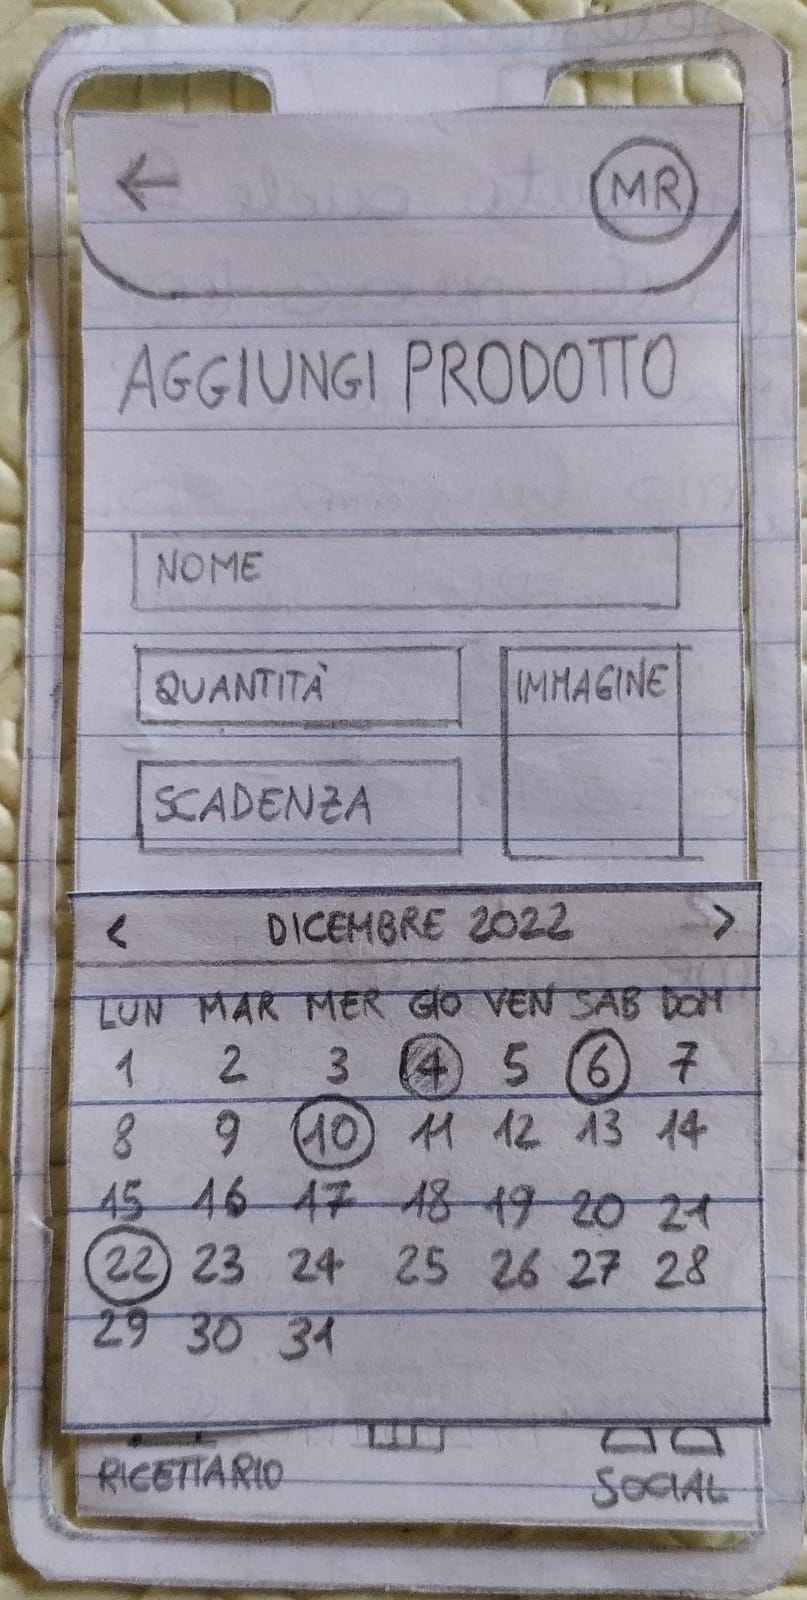 ← MR
AGGIUNGI PRODOTTO
NOME
QUANTITÀ IMMAGINE
SCADENZA
< DICEMBRE 2022 >
LUN MAR MER GIO VEN SAB DOM
1 2 3 4 5 6 7
8 9 10 11 12 13 14
15 16 17 18 19 20 21
22 23 24 25 26 27 28
29 30 31
RICETTARIO SOCIAL